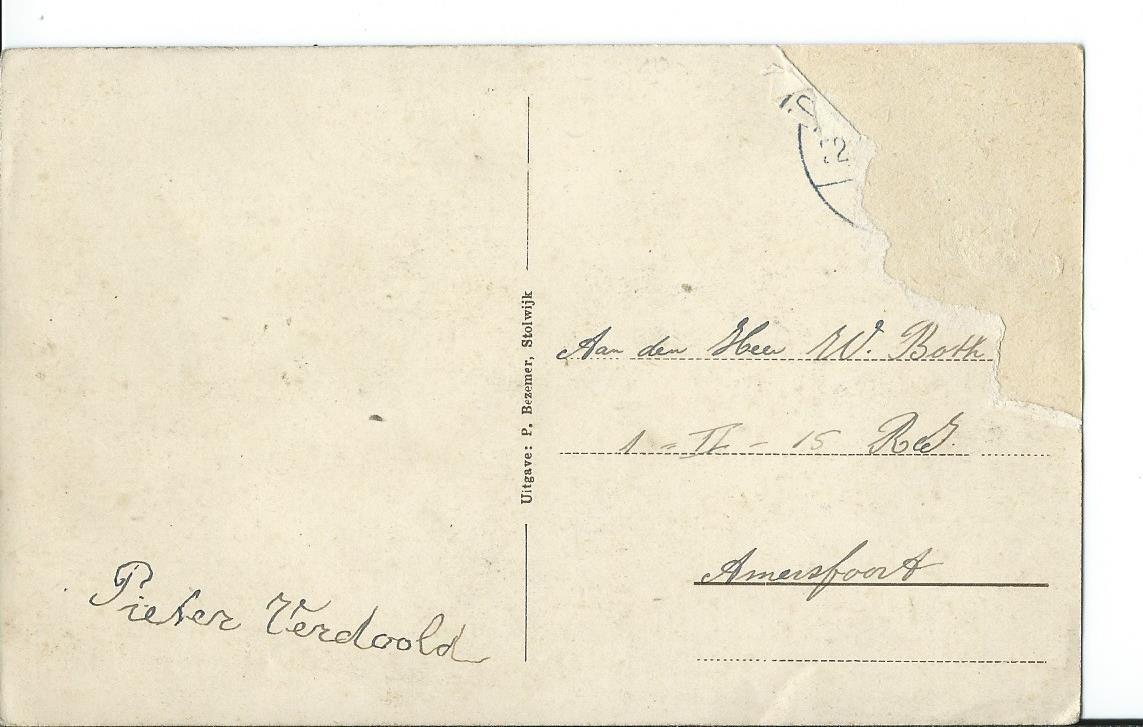 Uitgave: P. Bezemer, Stolwijk
Aan den Heer W. Both
1 - II - 15 R.I.
Amersfoort
Pieter Verdoold